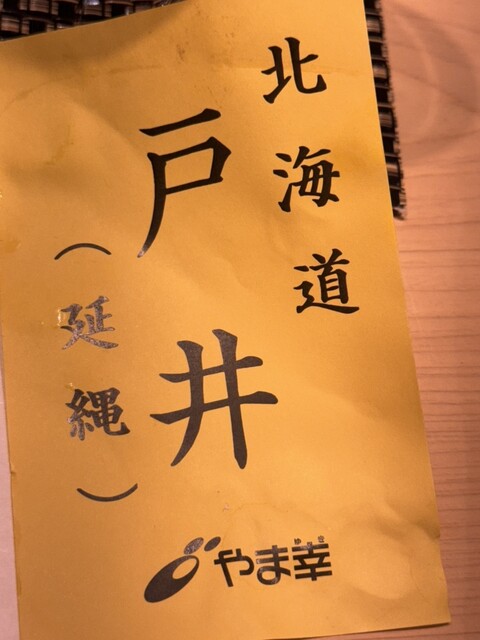 北海道
戸井
（延縄）
やま幸